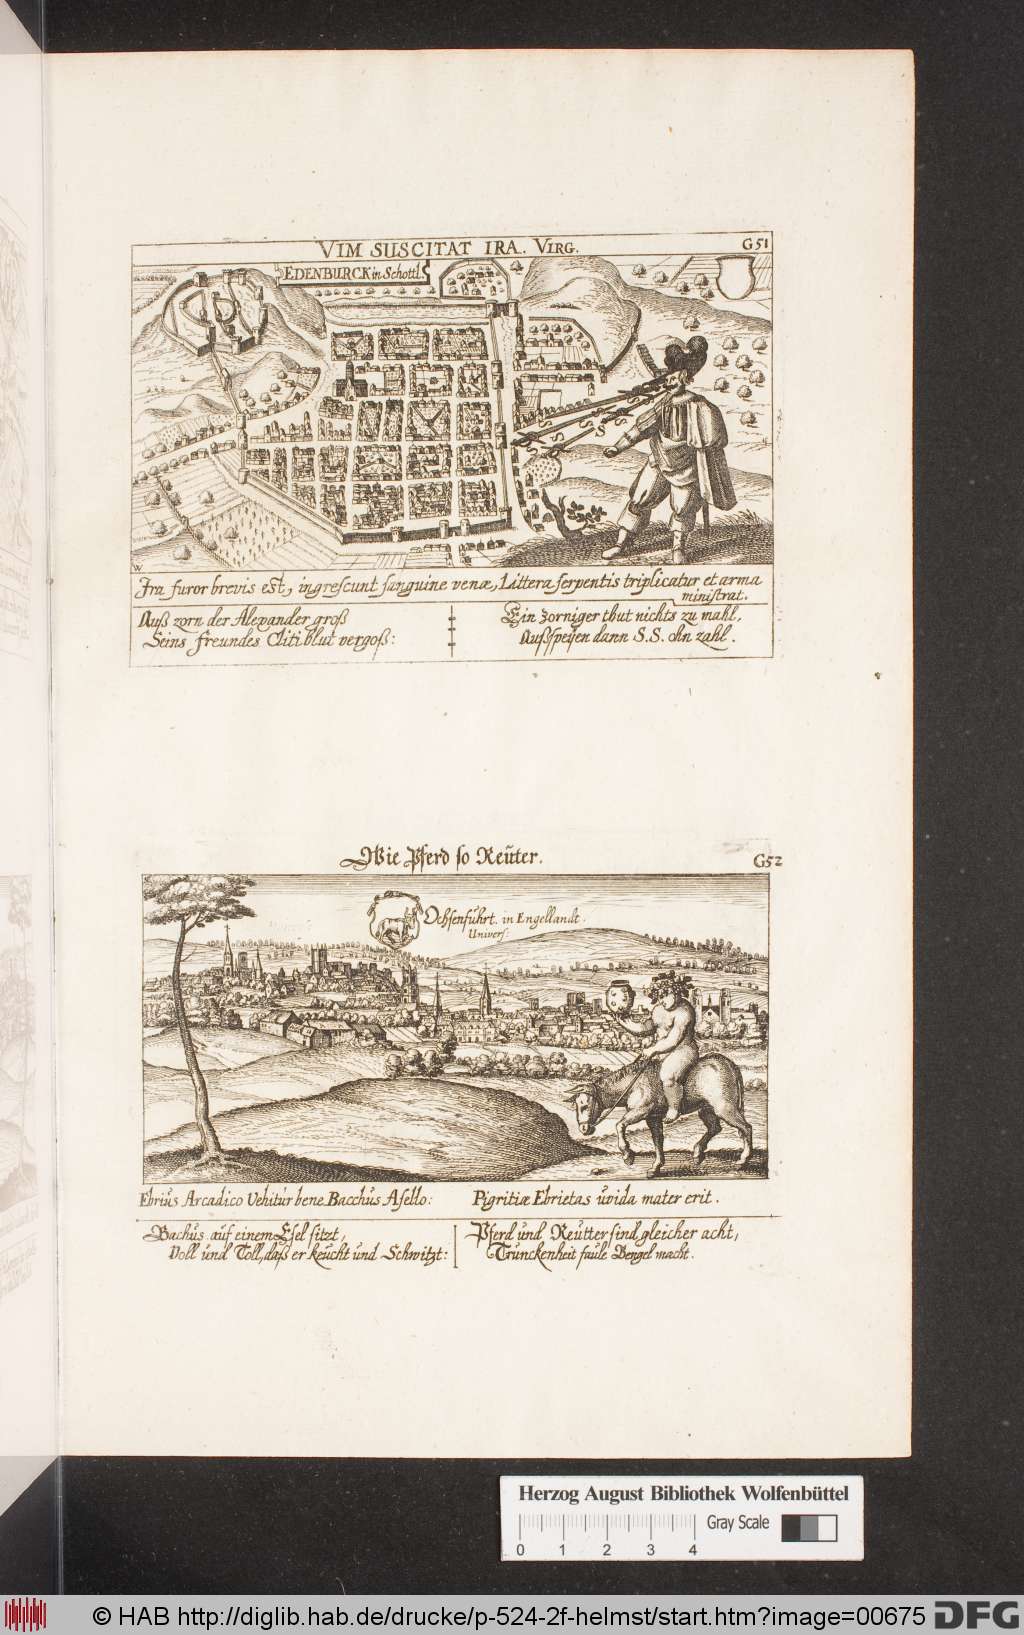 VIM SUSCITAT IRA. VIRG.
G51
EDENBURCK in Schottl.
W
Ira furor brevis est, ingrescunt sanguine venæ, Littera serpentis triplicatur et arma
ministrat.
Auß zorn der Alexander groß
Seins freundes Cliti blut vergoß:
Ein zorniger thut nichts zu mahl,
Außspeyen dann S.S. ohn zahl.
Wie Pferd so Reüter.
G52
Ochsenführt. in Engellandt.
Univers:
Ebriüs Arcadico Vehitür bene Bacchüs Asello:
Pigritiæ Ebrietas üvida mater erit.
Bachüs aüf einem Esel sitzt,
Voll ünd Toll, daß er keücht ünd Schwitzt:
Pferd ünd Reütter sind gleicher acht,
Trünckenheit faüle Bengel macht.
Herzog August Bibliothek Wolfenbüttel
Gray Scale
0 1 2 3 4
© HAB http://diglib.hab.de/drucke/p-524-2f-helmst/start.htm?image=00675
DFG